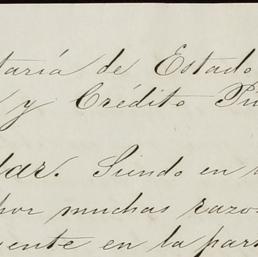 taría de Estado
y Crédito Pú
lar. Siendo en
por muchas razo
ente en la par